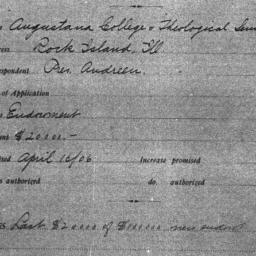 Augustana College & Theological Sem
Rock Island, Ill
spondent Pres. Andreen.
of Application
Endowment
$20000.-
April 16/06 Increase promised
authorized do. authorized
Last $20000 of $100000 new endow't